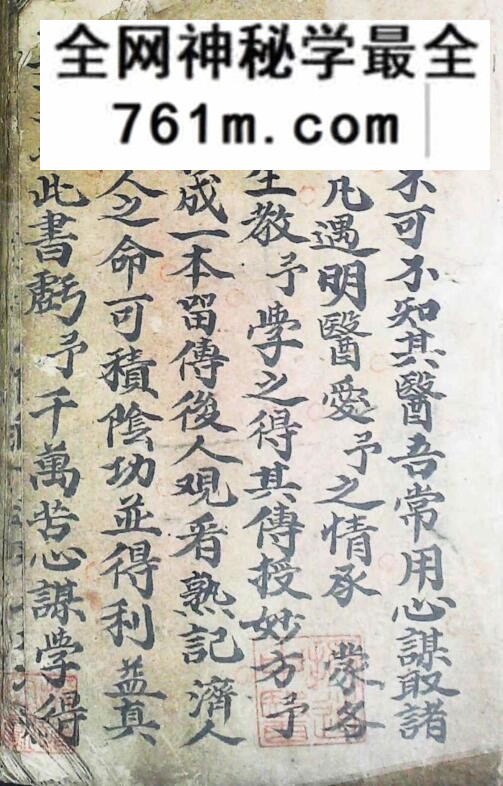 全网神秘学最全
761m.com
不可不知其醫吾常用心謀取諸
凡遇明醫愛予之情承蒙各
生教予學之得其傳授妙方予
成一本畄傳後人观看熟記濟人
人之命可積陰功並得利益真
此書虧予千萬苦心謀學得